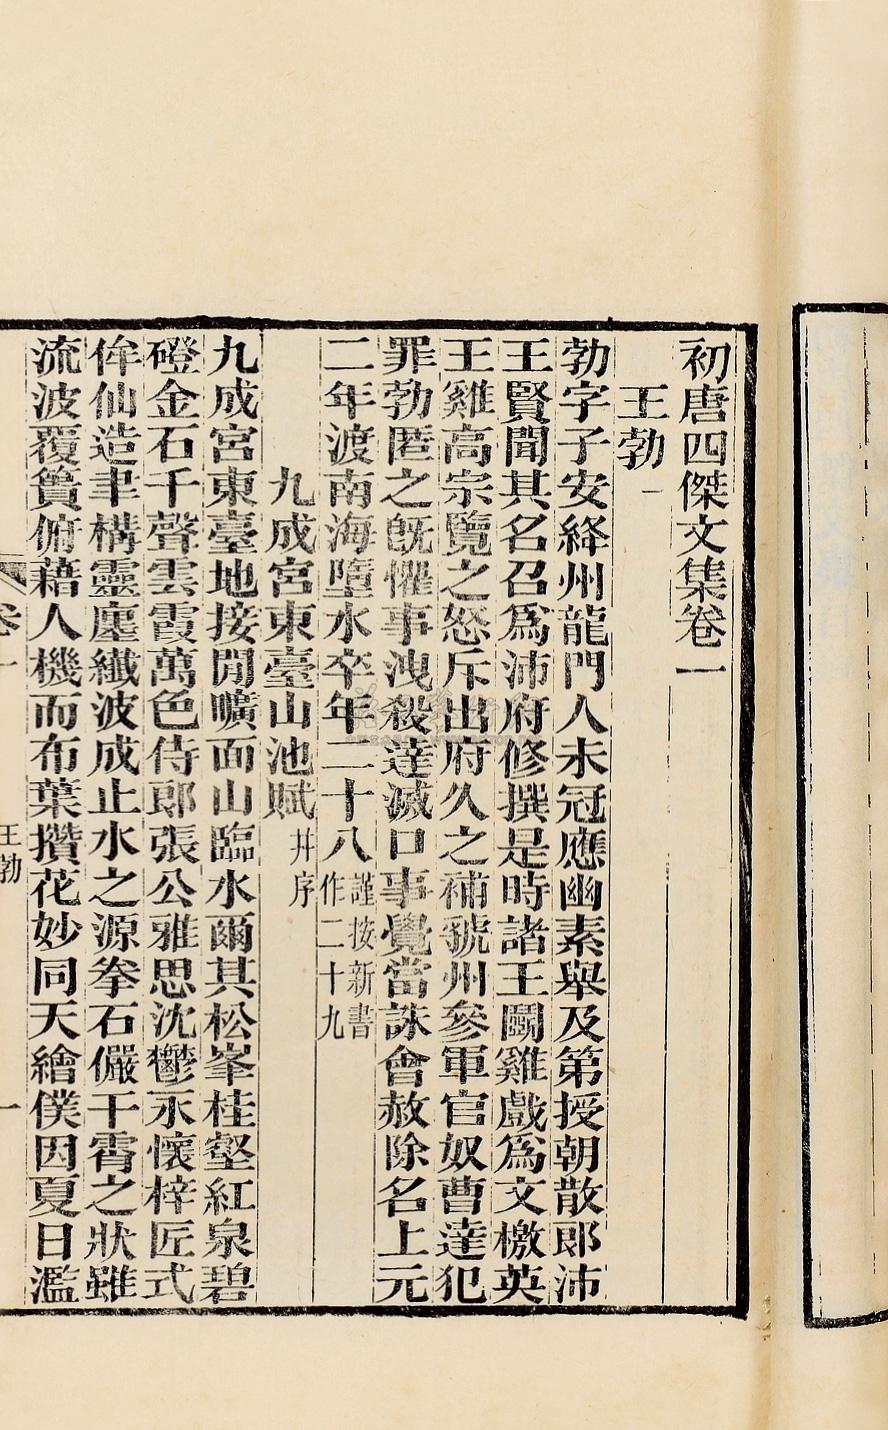 初唐四傑文集卷一
王勃一
勃字子安絳州龍門人未冠應幽素舉及第授朝散郎沛
王賢聞其名召爲沛府修撰是時諸王鬬雞戲爲文檄英
王雞高宗覽之怒斥出府久之補虢州參軍官奴曹達犯
罪勃匿之旣懼事洩殺達滅口事覺當誅會赦除名上元
二年渡南海墮水卒年二十八謹按新書作二十九
九成宮東臺山池賦幷序
九成宮東臺地接閒曠面山臨水爾其松峯桂壑紅泉碧
磴金石千聲雲霞萬色侍郎張公雅思沈鬱永懷梓匠式
侔仙造聿構靈廛纖波成止水之源拳石儼干霄之狀雖
流波覆簣俯藉人機而布葉攢花妙同天繪僕因夏日濫
卷一
王勃
一